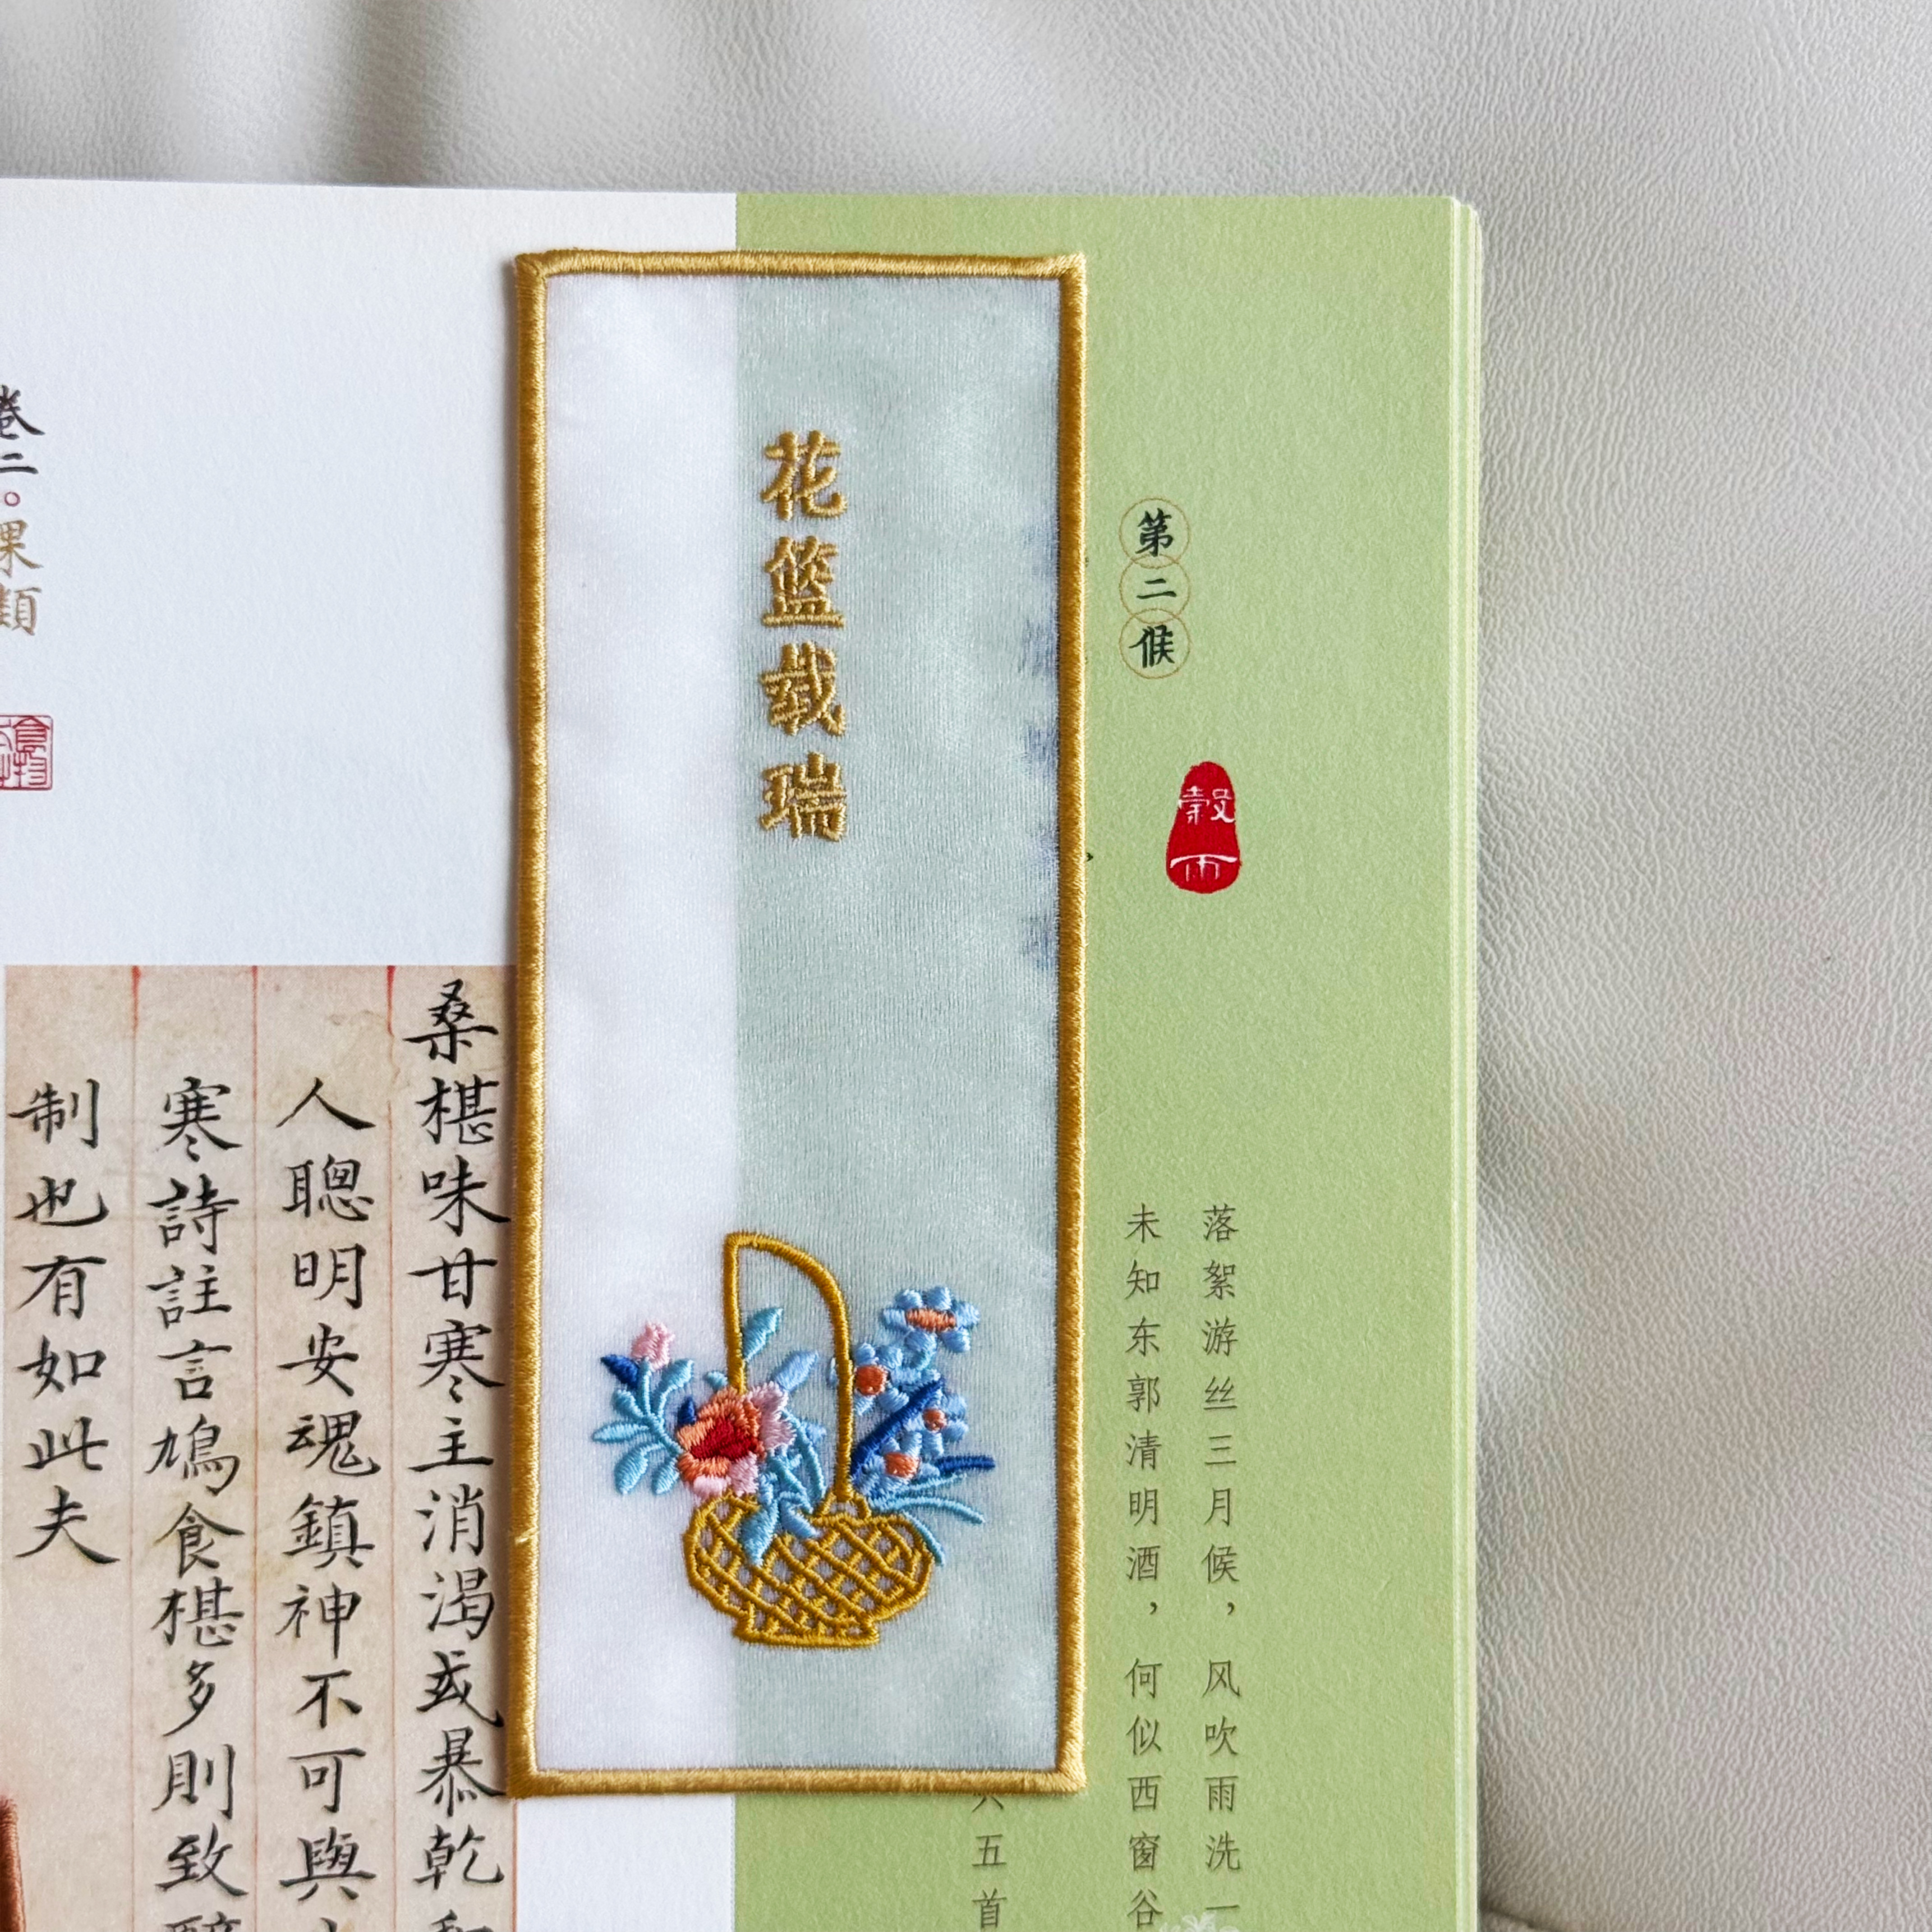 花篮载瑞
第二候
穀雨
落絮游丝三月候，风吹雨洗一
未知东郭清明酒，何似西窗谷
五首
卷二。果類
食物
桑椹味甘寒主消渴或暴乾
人聰明安魂鎮神不可與
寒詩註言鳩食椹多則致
制也有如此夫